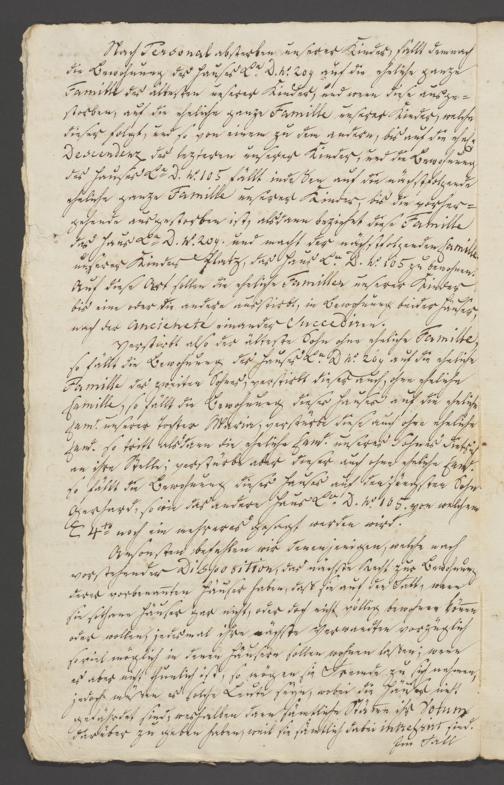 Nach Personal absterben unserer Kinder, fällt demnach
die Bewohnung des Hauses La. D. No. 209 auf die eheliche ganze
Famille des ältesten unserer Kinder, und wenn diese ausge-
storben, auf die eheliche ganze Famille unserer Kinder, welche
dieser folgt, und so von einem zu dem andern, bis auf die ehel.
Descendenz des lezteren unserer Kinder, und die Bewohnung
des Hauses La. D. No. 105 fällt indessen auf die nächstfolgende
eheliche ganze Famille unserer Kinder, bis die vorher-
gehende ausgestorben ist, alsdann beziehet diese Famille
das Haus La. D. No. 209. und macht der nächstfolgenden Famille
unserer Kinder Platz, das Haus La. D. No. 105 zu bewohnen.
Auf diese Art sollen die eheliche Famillen unserer Kinder
bis eine oder die andere ausstirbt, in Bewohnung beider Häuser
nach der ancienete einander Succediren.
Verstirbt also der älteste Sohn ohne eheliche Famille,
so fällt die Bewohnung des Hauses La. D. No. 209 auf die eheliche
Famille des zweiten Sohns, verstirbt dieser auch ohne eheliche
Famille, so fällt die Bewohnung dieses Hauses auf die eheliche
Fam. unserer Tochter Maria, verstürbe diese auch ohne eheliche
Fam. so tritt alsdann die eheliche Fam. unseres Sohnes
an ihre Stelle; verstürbe aber dieser auch ohne eheliche Fam.
so fällt die Bewohnung dieses Hauses auf den jüngsten Sohn
Gerhard, so wie das andere Haus La. D. No. 105. von welchem
4to noch ein mehreres gesagt werden wird.
Ansonsten befehlen wir denenjenigen, welche nach
vorstehender Disposition, das nächste Recht zur Bewohnung
derer vorbenannten Häuser haben, daß sie auf den Fall, wenn
sie sothane Häuser gar nicht, oder doch nicht völlig bewohnen können
oder wollen, jedesmal ihre nächste Verwandten vorzüglich
soviel möglich in denen Häusern sollen wohnen lassen; wenn
es aber nicht thunlich ist, so mögen sie Fremde zu sich nehmen,
jedoch müssen es solche Leute seyn, wobei die Häuser nicht
gefährdet sind, weshalben dann sämtliche ihr Votum
darüber zu geben haben, weil sie sämtlich dabei intressirt sind.
Im Fall